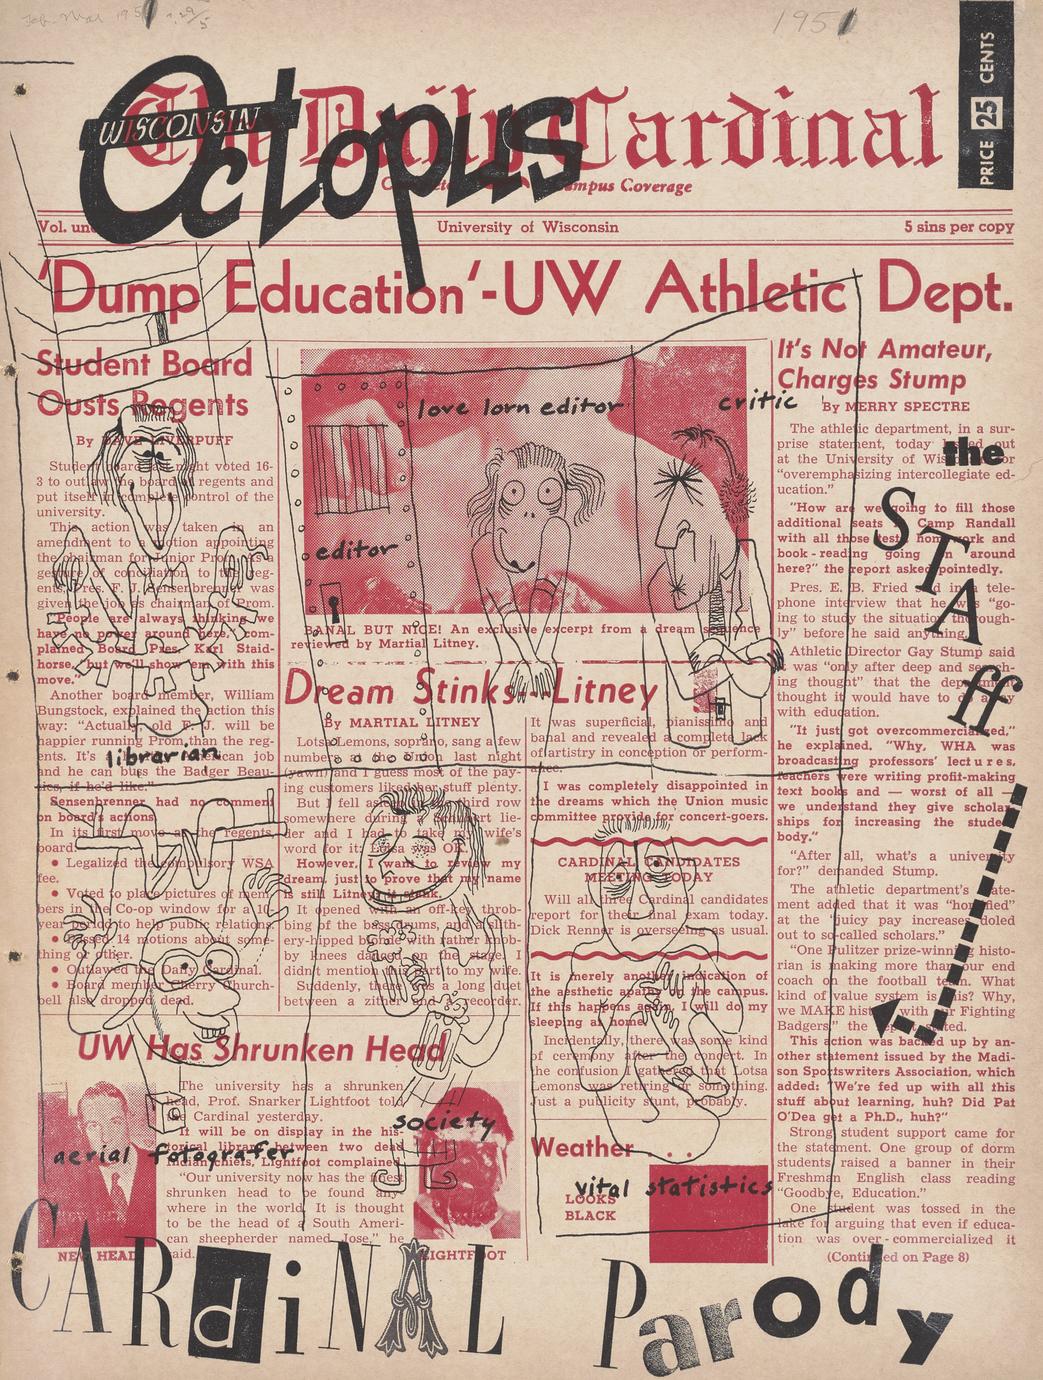 1951
WISCONSIN
Octopus
The Daily Cardinal
Campus Coverage
PRICE 25 CENTS
University of Wisconsin
5 sins per copy
'Dump Education'-UW Athletic Dept.
Student Board
Ousts Regents
By DAVE LIVERPUFF
Student board last night voted 16-
3 to outlaw the board of regents and
put itself in complete control of the
university.
This action was taken in an
amendment to a motion appointing
the chairman for Junior Prom. As a
gesture of conciliation to the reg-
ents, Pres. F. J. Sensenbrenner was
given the job as chairman of Prom.
"People are always thinking we
have no power around here," com-
plained Board Pres. Karl Staid-
horse, "but we'll show 'em with this
move."
Another board member, William
Bungstock, explained the action this
way: "Actually, old F. J. will be
happier running Prom than the reg-
ents. It's a job
and he can burs the Badger Beau-
ties, if he'd like."
Sensenbrenner had no comment
on board's actions.
In its first move as the regents,
board:
• Legalized the compulsory WSA
fee.
• Voted to place pictures of mem-
bers in the Co-op window for a 10-
year period to help public relations.
• Passed 14 motions about some-
thing or other.
• Outlawed the Daily Cardinal.
• Board member Cherry Church-
bell also dropped dead.
librarian
editor
love lorn editor
critic
BANAL BUT NICE! An exclusive excerpt from a dream sequence
reviewed by Martial Litney.
Dream Stinks---Litney
By MARTIAL LITNEY
Lotsa Lemons, soprano, sang a few
numbers at the Union last night
(yawn) and I guess most of the pay-
ing customers liked her stuff plenty.
But I fell asleep in the third row
somewhere during a Schubert lie-
der and I had to take my wife's
word for it: Lotsa was OK.
However, I want to review my
dream, just to prove that my name
is still Litney: it stank.
It opened with an off-key throb-
bing of the bass drums, and a slith-
ery-hipped blonde with rather knob-
by knees danced on the stage. I
didn't mention this part to my wife.
Suddenly, there was a long duet
between a zither and a recorder.
It was superficial, pianissimo and
banal and revealed a complete lack
of artistry in conception or perform-
ance.
I was completely disappointed in
the dreams which the Union music
committee provide for concert-goers.
CARDINAL CANDIDATES
MEETING TODAY
Will all three Cardinal candidates
report for their final exam today.
Dick Renner is overseeing as usual.
It is merely another indication of
the aesthetic apathy on the campus.
If this happens again, I will do my
sleeping at home.
Incidentally, there was some kind
of ceremony after the concert. In
the confusion I gathered that Lotsa
Lemons was retiring or something.
Just a publicity stunt, probably.
Weather . . .
LOOKS
BLACK
vital statistics
UW Has Shrunken Head
The university has a shrunken
head, Prof. Snarker Lightfoot told
the Cardinal yesterday.
It will be on display in the his-
torical library between two dead
Indian chiefs, Lightfoot complained.
"Our university now has the finest
shrunken head to be found any-
where in the world. It is thought
to be the head of a South Ameri-
can sheepherder named Jose," he
said.
NEW HEAD
LIGHTFOOT
aerial fotografer
society
It's Not Amateur,
Charges Stump
By MERRY SPECTRE
The athletic department, in a sur-
prise statement, today lashed out
at the University of Wisconsin for
"overemphasizing intercollegiate ed-
ucation."
"How are we going to fill those
additional seats at Camp Randall
with all those tests, homework and
book-reading going on around
here?" the report asked pointedly.
Pres. E. B. Fried said in a tele-
phone interview that he was "go-
ing to study the situation thorough-
ly" before he said anything.
Athletic Director Gay Stump said
it was "only after deep and search-
ing thought" that the department
thought it would have to do away
with education.
"It just got overcommercialized,"
he explained. "Why, WHA was
broadcasting professors' lectures,
teachers were writing profit-making
text books and — worst of all —
we understand they give scholar-
ships for increasing the student
body."
"After all, what's a university
for?" demanded Stump.
The athletic department's state-
ment added that it was "horrified"
at the "juicy pay increases doled
out to so-called scholars."
"One Pulitzer prize-winning histo-
rian is making more than our end
coach on the football team. What
kind of value system is this? Why,
we MAKE history with our Fighting
Badgers," the report stated.
This action was backed up by an-
other statement issued by the Madi-
son Sportswriters Association, which
added: "We're fed up with all this
stuff about learning, huh? Did Pat
O'Dea get a Ph.D., huh?"
Strong student support came for
the statement. One group of dorm
students raised a banner in their
Freshman English class reading
"Goodbye, Education."
One student was tossed in the
lake for arguing that even if educa-
tion was over-commercialized it
(Continued on Page 8)
the
STAff
CARdiNAL Parody